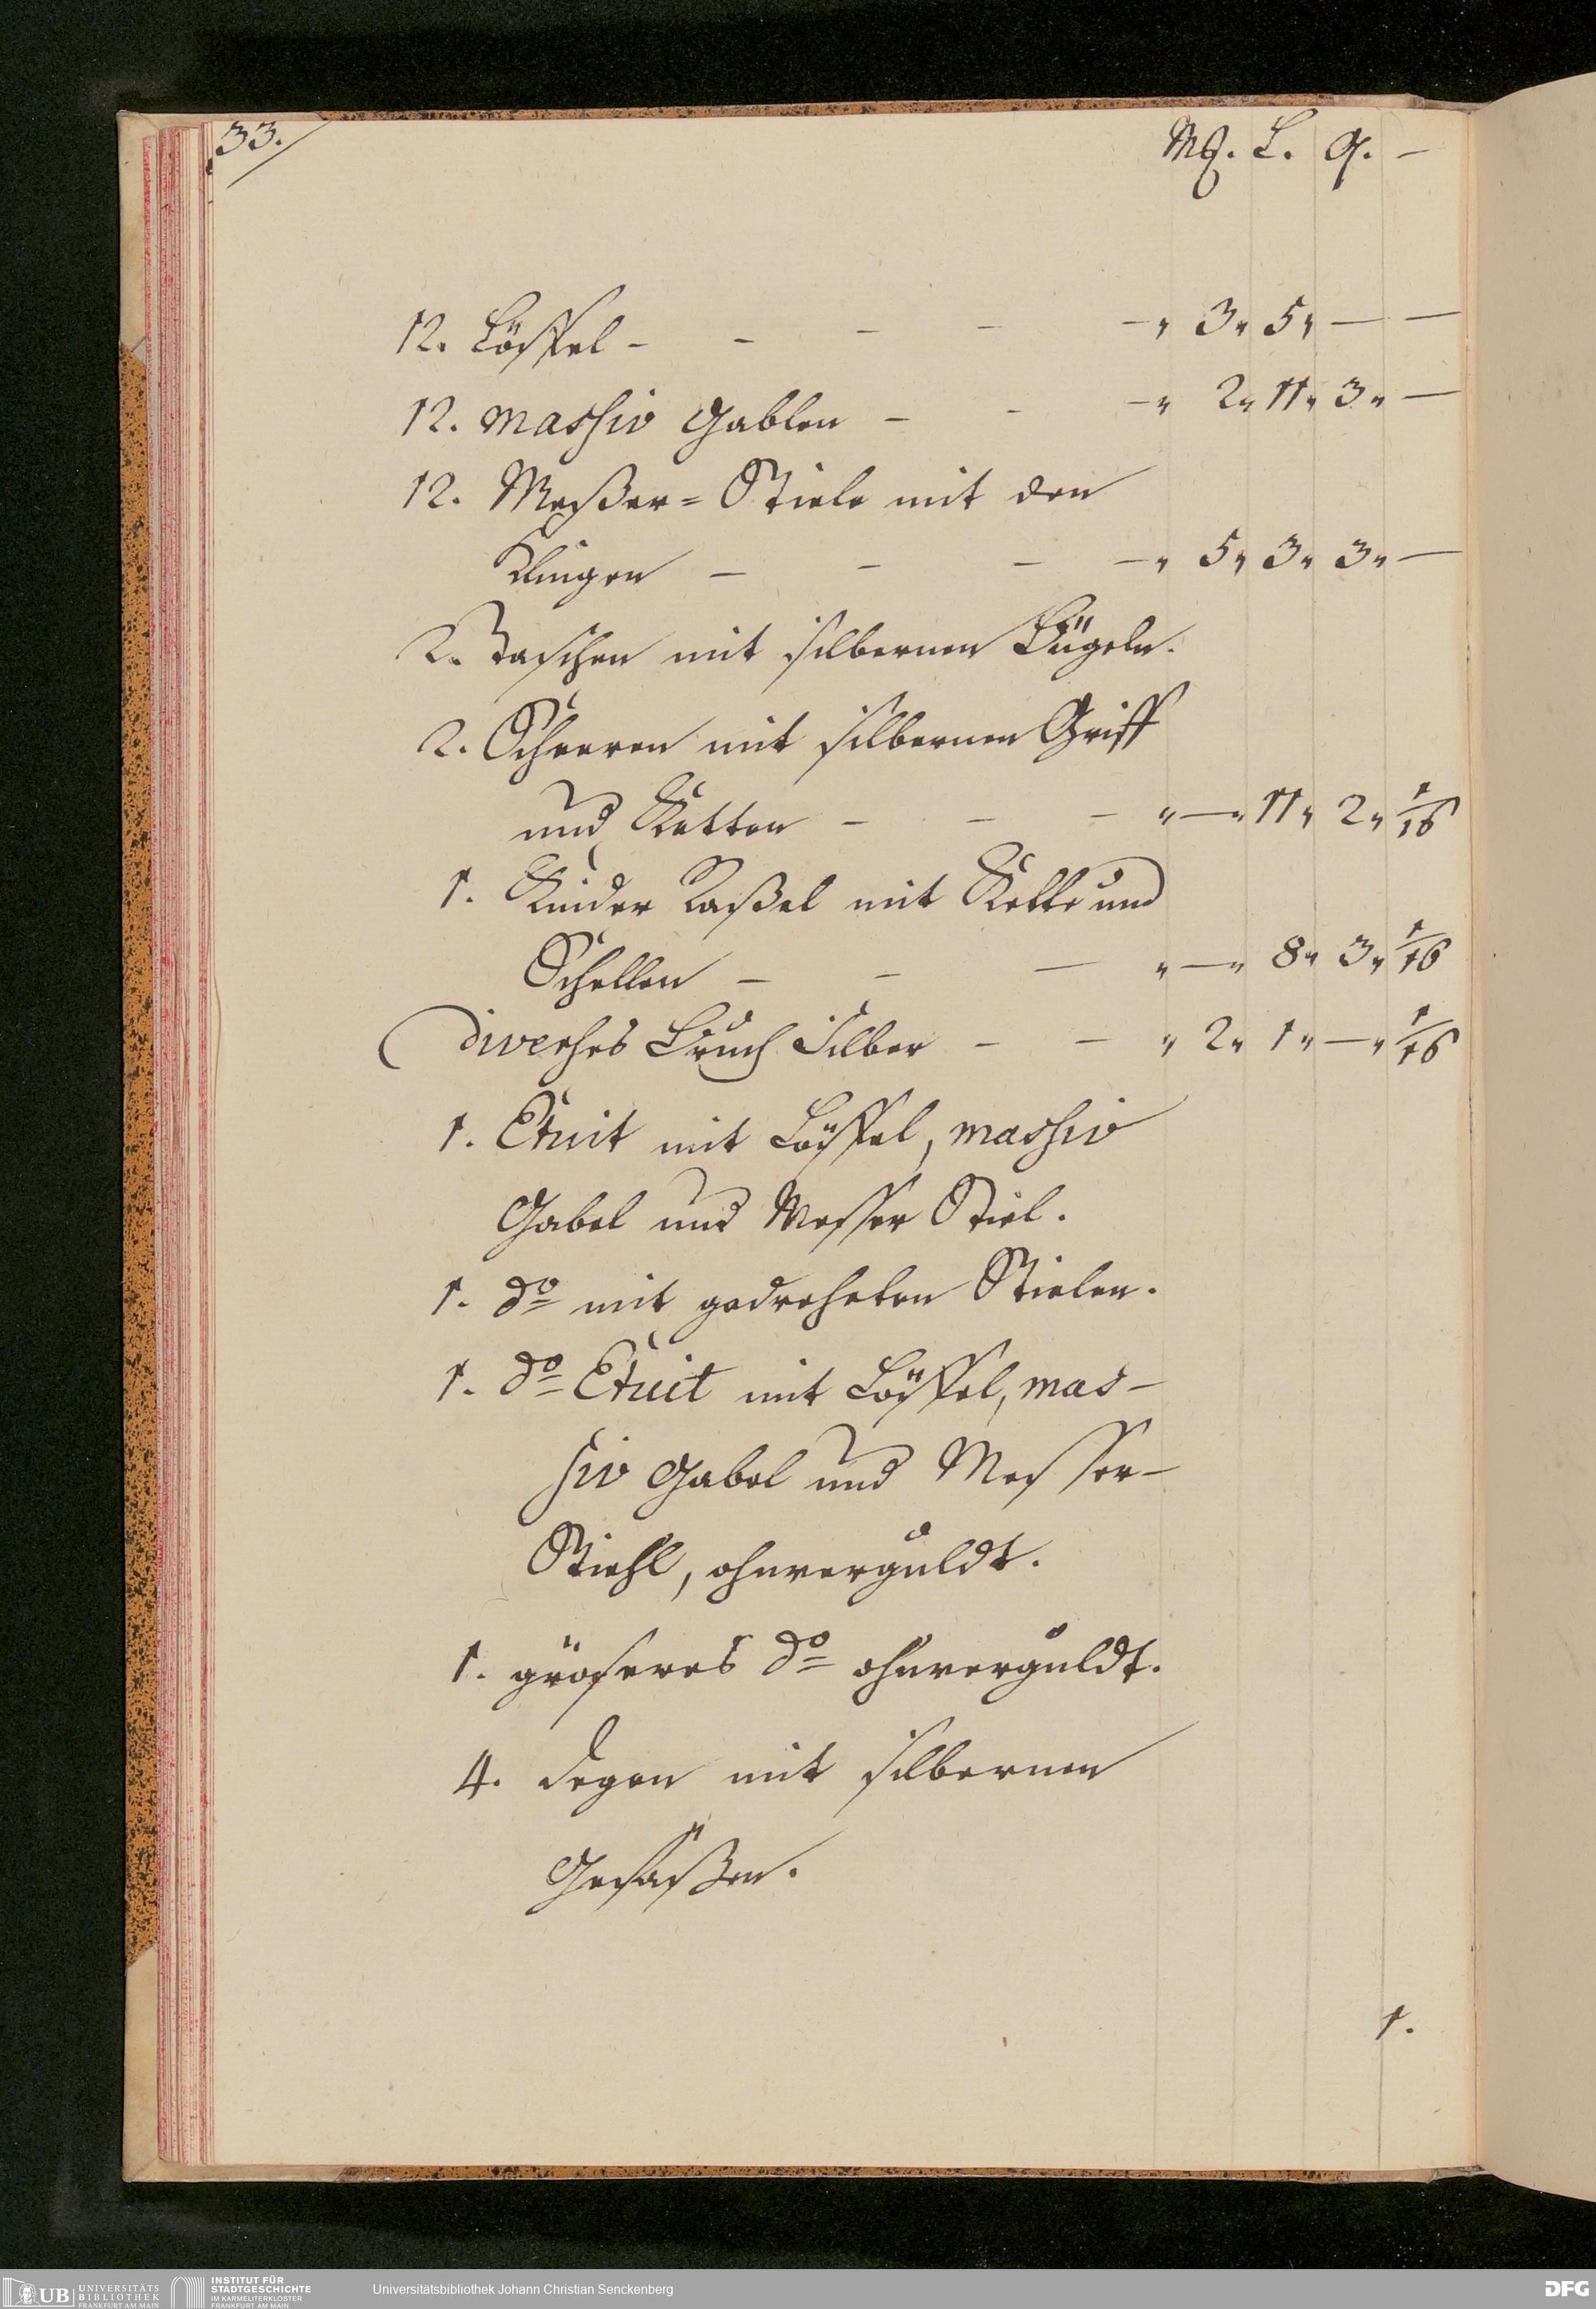 33.
Mß. L. q. –
12. Löffel – – – – – „ 3„ 5„ — —
12. massiv Gablen – – – „ 2„ 11„ 3„ —
12. Meßer = Stiele mit den
Klingen – – – – „ 5„ 3„ 3„ —
2. Taschen mit silbernen Bügeln.
2. Scheeren mit silbernen Griff
und Ketten – – – „ — „ 11„ 2„ 1/16
1. Kinder Raßel mit Kette und
Schellen – – – „ — „ 8„ 3„ 1/16
diverses Bruch Silber – – „ 2„ 1„ — „ 1/16
1. Etuit mit Löffel, massiv
Gabel und Messer Stiel.
1. do mit gedreheten Stielen.
1. do Etuit mit Löffel, mas-
siv Gabel und Messer-
Stiehl, ohnverguldt.
1. gröseres do ohnverguldt.
4. Degen mit silbernen
Gefäßen.
1.
UB UNIVERSITÄTS
BIBLIOTHEK
FRANKFURT AM MAIN
INSTITUT FÜR
STADTGESCHICHTE
IM KARMELITERKLOSTER
FRANKFURT AM MAIN
Universitätsbibliothek Johann Christian Senckenberg
DFG